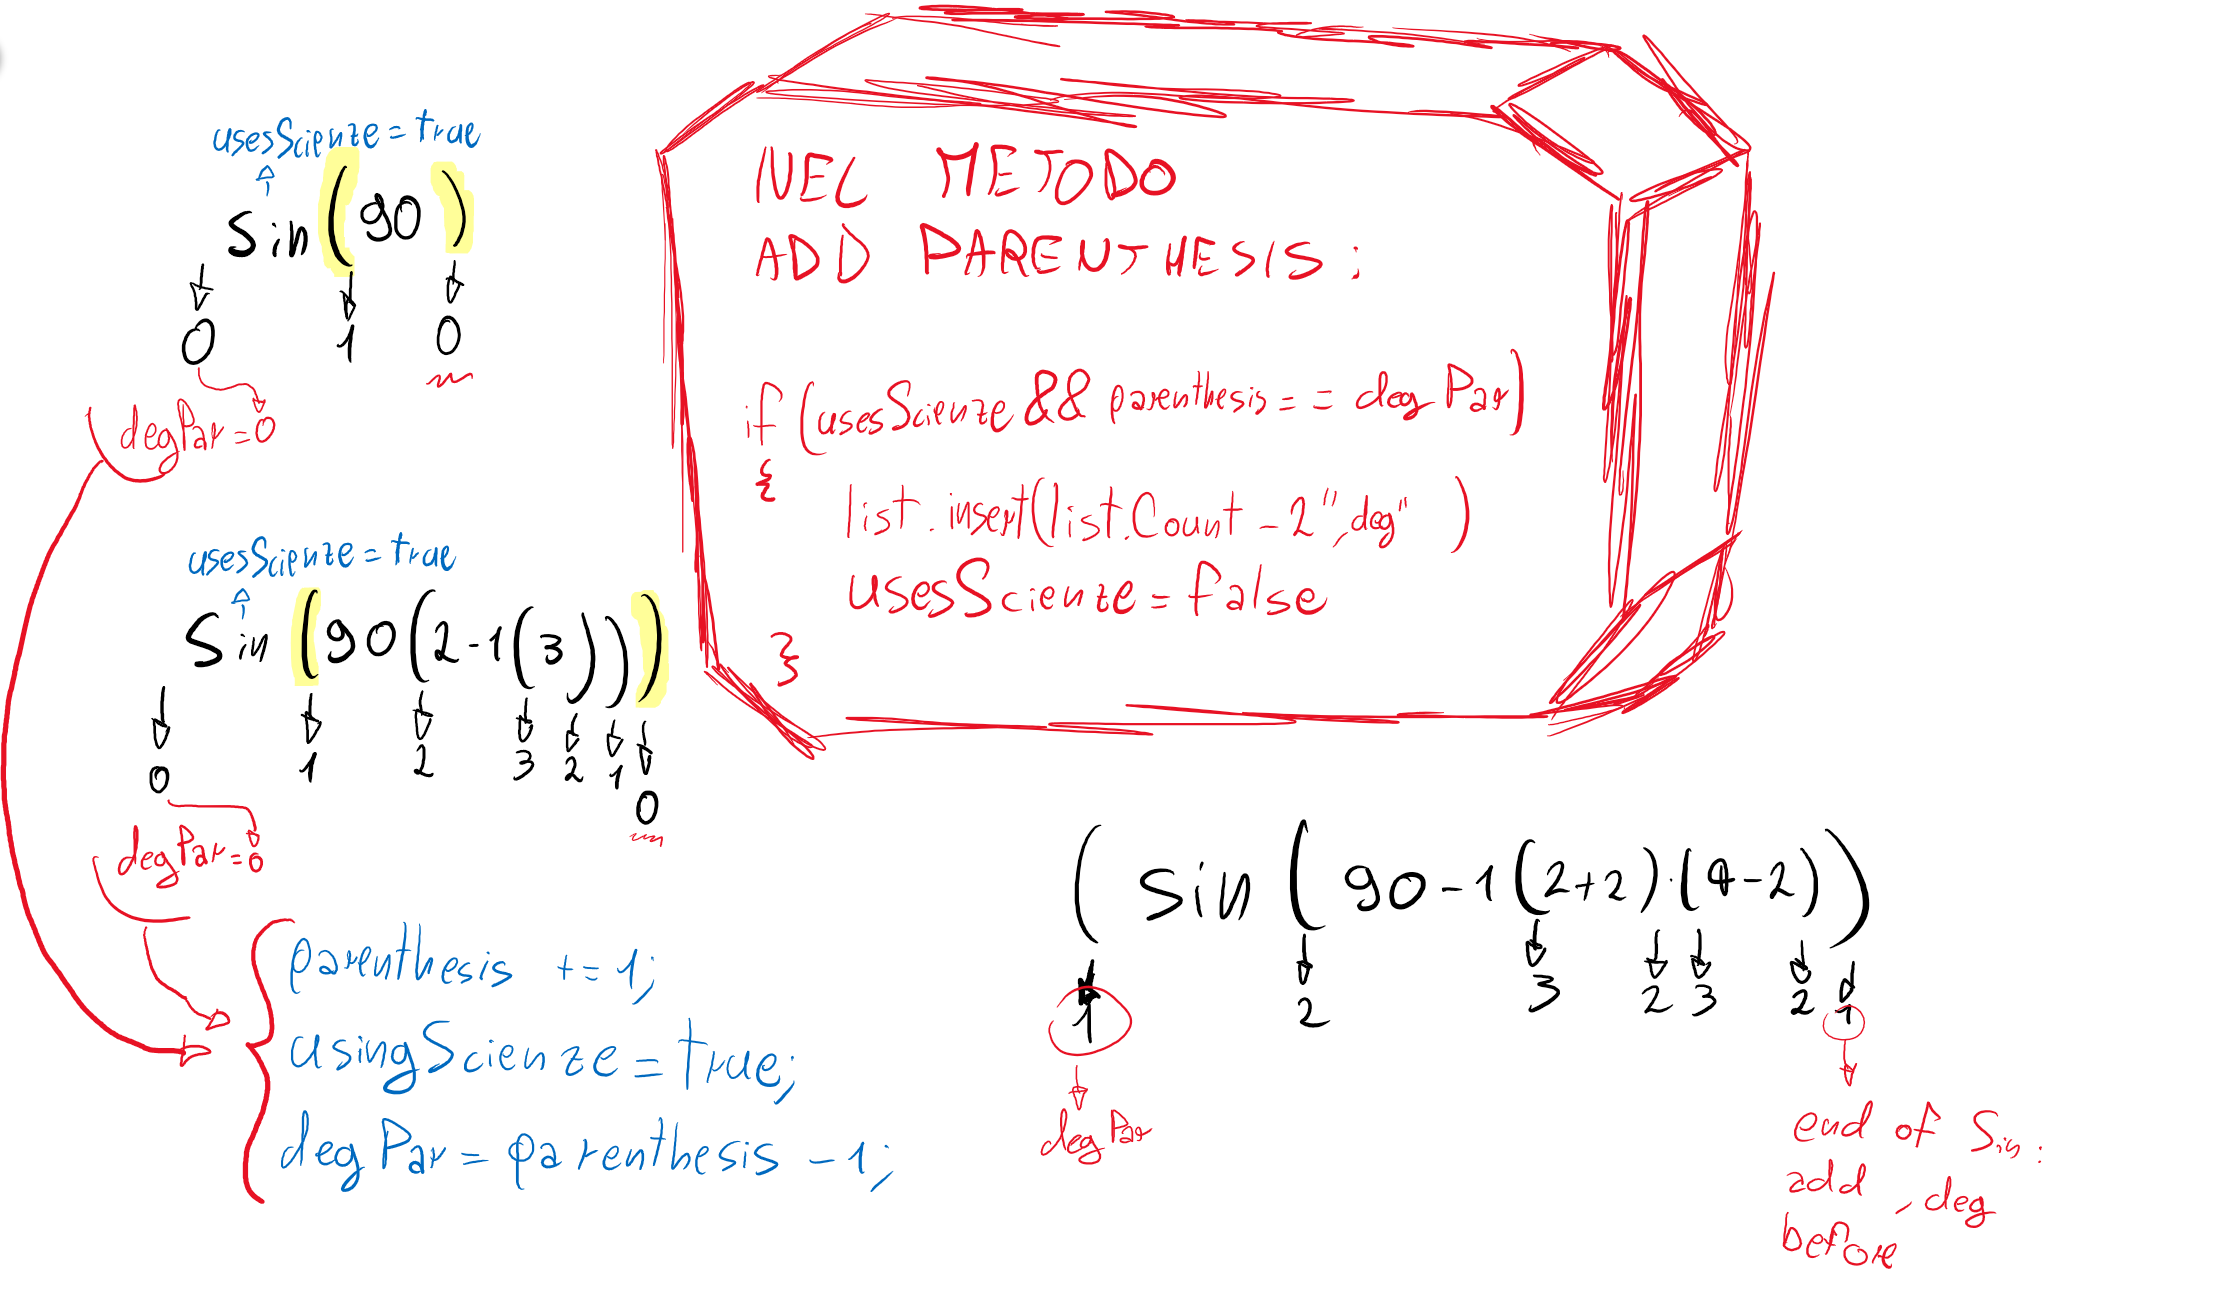 usesScienze = true
sin (90)
0 1 0
degPar = 0
usesScienze = true
Sin (90(2-1(3)))
0 1 2 3 2 1 0
degPar = 0
parenthesis += 1;
usingScienze = true;
degPar = parenthesis - 1;
NEL METODO
ADD PARENTHESIS:
if (usesScienze && parenthesis == degPar)
{
list.insert(list.Count - 2 ",deg" )
usesScienze = false
}
( sin ( 90-1(2+2)·(4-2))
1 2 3 2 3 2 1
degPar
end of Sin:
add ,deg
before